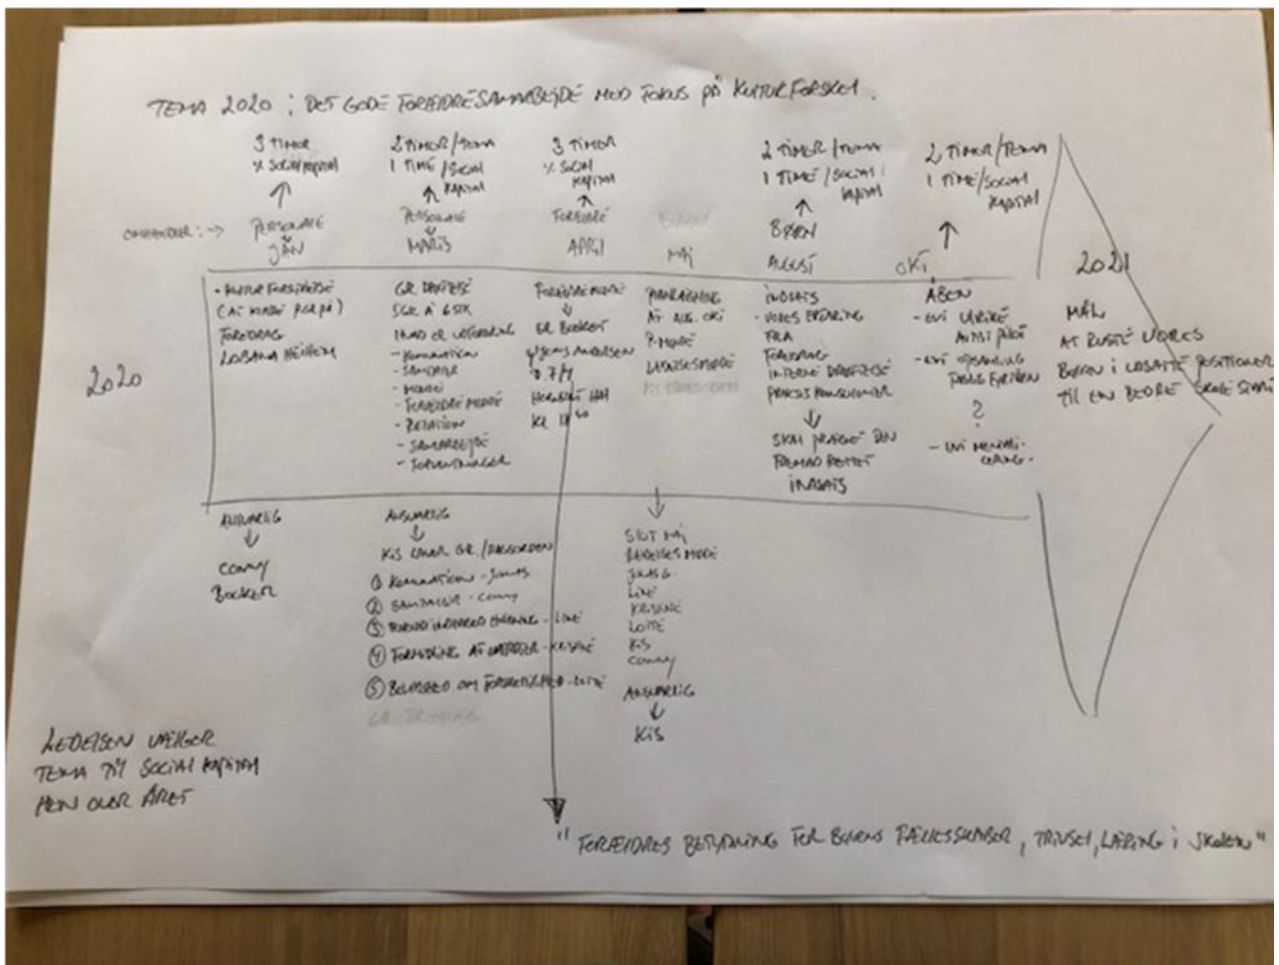 TEMA 2020 : DET GODE FORÆLDRESAMARBEJDE MED FOKUS PÅ KULTURFORSKEL.
3 TIMER
% SOCIAL KAPITAL
PERSONALE
JAN
2 TIMER/TEMA
1 TIME/SOCIAL
KAPITAL
PERSONALE
MARTS
3 TIMER
% SOCIAL
KAPITAL
FORÆLDRE
APRIL
MAJ
2 TIMER/TEMA
1 TIME/SOCIAL
KAPITAL
BØRN
AUGUST
2 TIMER/TEMA
1 TIME/SOCIAL
KAPITAL
OKT
2020
- KULTURFORSTÅELSE
FOREDRAG
GR DRØFTELSE
5 GR Á 6 STK
HVAD ER UDFORDRING
- KOMMUNIKATION
- SAMTALER
- MØDER
- FORÆLDREMØDE
- RELATION
- SAMARBEJDE
- FORVENTNINGER
FORÆLDREMØDE
ER BOOKET
JENS ANDERSEN
D. 7/4
KL
PLANLÆGNING
AF AUG. OKT
P-MØDE
LEDELSESMØDE
INDSATS
- VORES ERFARING
FRA
FOREDRAG
INTERNE DRØFTELSE
PRAKSIS KONSULENTER
SKAL PRÆGE DEN
FREMAD RETTET
INDSATS
ÅBEN
- EVT ULRIKE
- EVT
?
- EVT
2021
MÅL
AT RUSTE VORES
BØRN I UDSATTE POSITIONER
TIL EN BEDRE SKOLE START
ANSVARLIG
CONNY
BOOKER
ANSVARLIG
KIS LAVER GR./DAGSORDEN
① KOMMUNIKATION - JONAS
② SAMTALER - CONNY
③ - LINE
④ FORMIDLING AF VÆRDIER - KRISTINE
⑤ BEVIDSTHED OM FORSKELLIGHED - LOTTE
SLUT MAJ
LEDELSESMØDE
JONAS G.
LINE
KRISTINE
LOTTE
KIS
CONNY
ANSVARLIG
KIS
LEDELSEN VÆLGER
TEMA TIL SOCIAL KAPITAL
HEN OVER ÅRET
" FORÆLDRES BETYDNING FOR BØRNS FÆLLESSKABER, TRIVSEL, LÆRING I SKOLEN "